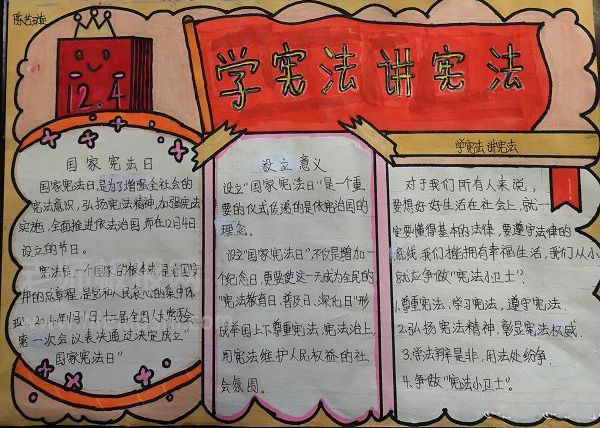 学宪法讲宪法
12.4
国家宪法日
国家宪法日,是为了增强全社会的
宪法意识,弘扬宪法精神,加强宪法
实施,全面推进依法治国,而在12月4日
设立的节日。
宪法是一个国家的根本法,是治国安
邦的总章程,是党和人民意志的集中体
现。2014年11月1日,十二届全国人大常委会
第一次会议表决通过决定成立"
国家宪法日"
设立意义
设立"国家宪法日"是一个重
要的仪式传递的是依宪治国的
理念。
设立"国家宪法日",不仅是增加一
个纪念日,更要使这一天成为全民的
"宪法教育日、普及日、深化日"形
成举国上下尊重宪法、宪法治上,
用宪法维护人民权益的社
会氛围。
学宪法讲宪法
对于我们所有人来说,
要想好好生活在社会上,就一
定要懂得基本的法律,要遵守法律的
底线,我们才能拥有幸福生活,我们从小
就应争做"宪法小卫士"。
1.尊重宪法、学习宪法,遵守宪法.
2.弘扬宪法精神.彰显宪法权威.
3.学法辩是非.用法处纷争.
4.争做"宪法小卫士"。